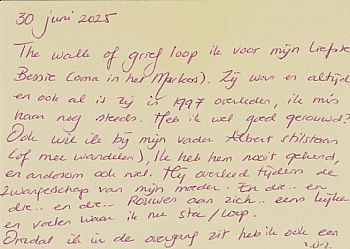 30 juni 2025
The walk of grief loop ik voor mijn liefste
Bessie (oma in het Markees). Zij was er altijd
en ook al is zij in 1997 overleden, ik mis
haar nog steeds. Heb ik wel goed gerouwd?
Ook wil ik bij mijn vader Albert stilstaan
(of mee wandelen), Ik heb hem nooit gekend,
en andersom ook niet. Hij overleed tijdens de
zwangerschap van mijn moeder. En die.. en
die.. en die.. Rouwen aan zich.. eens kijken
en voelen waar ik nu sta/loop.
Omdat ik in de overgang zit heb ik ook een